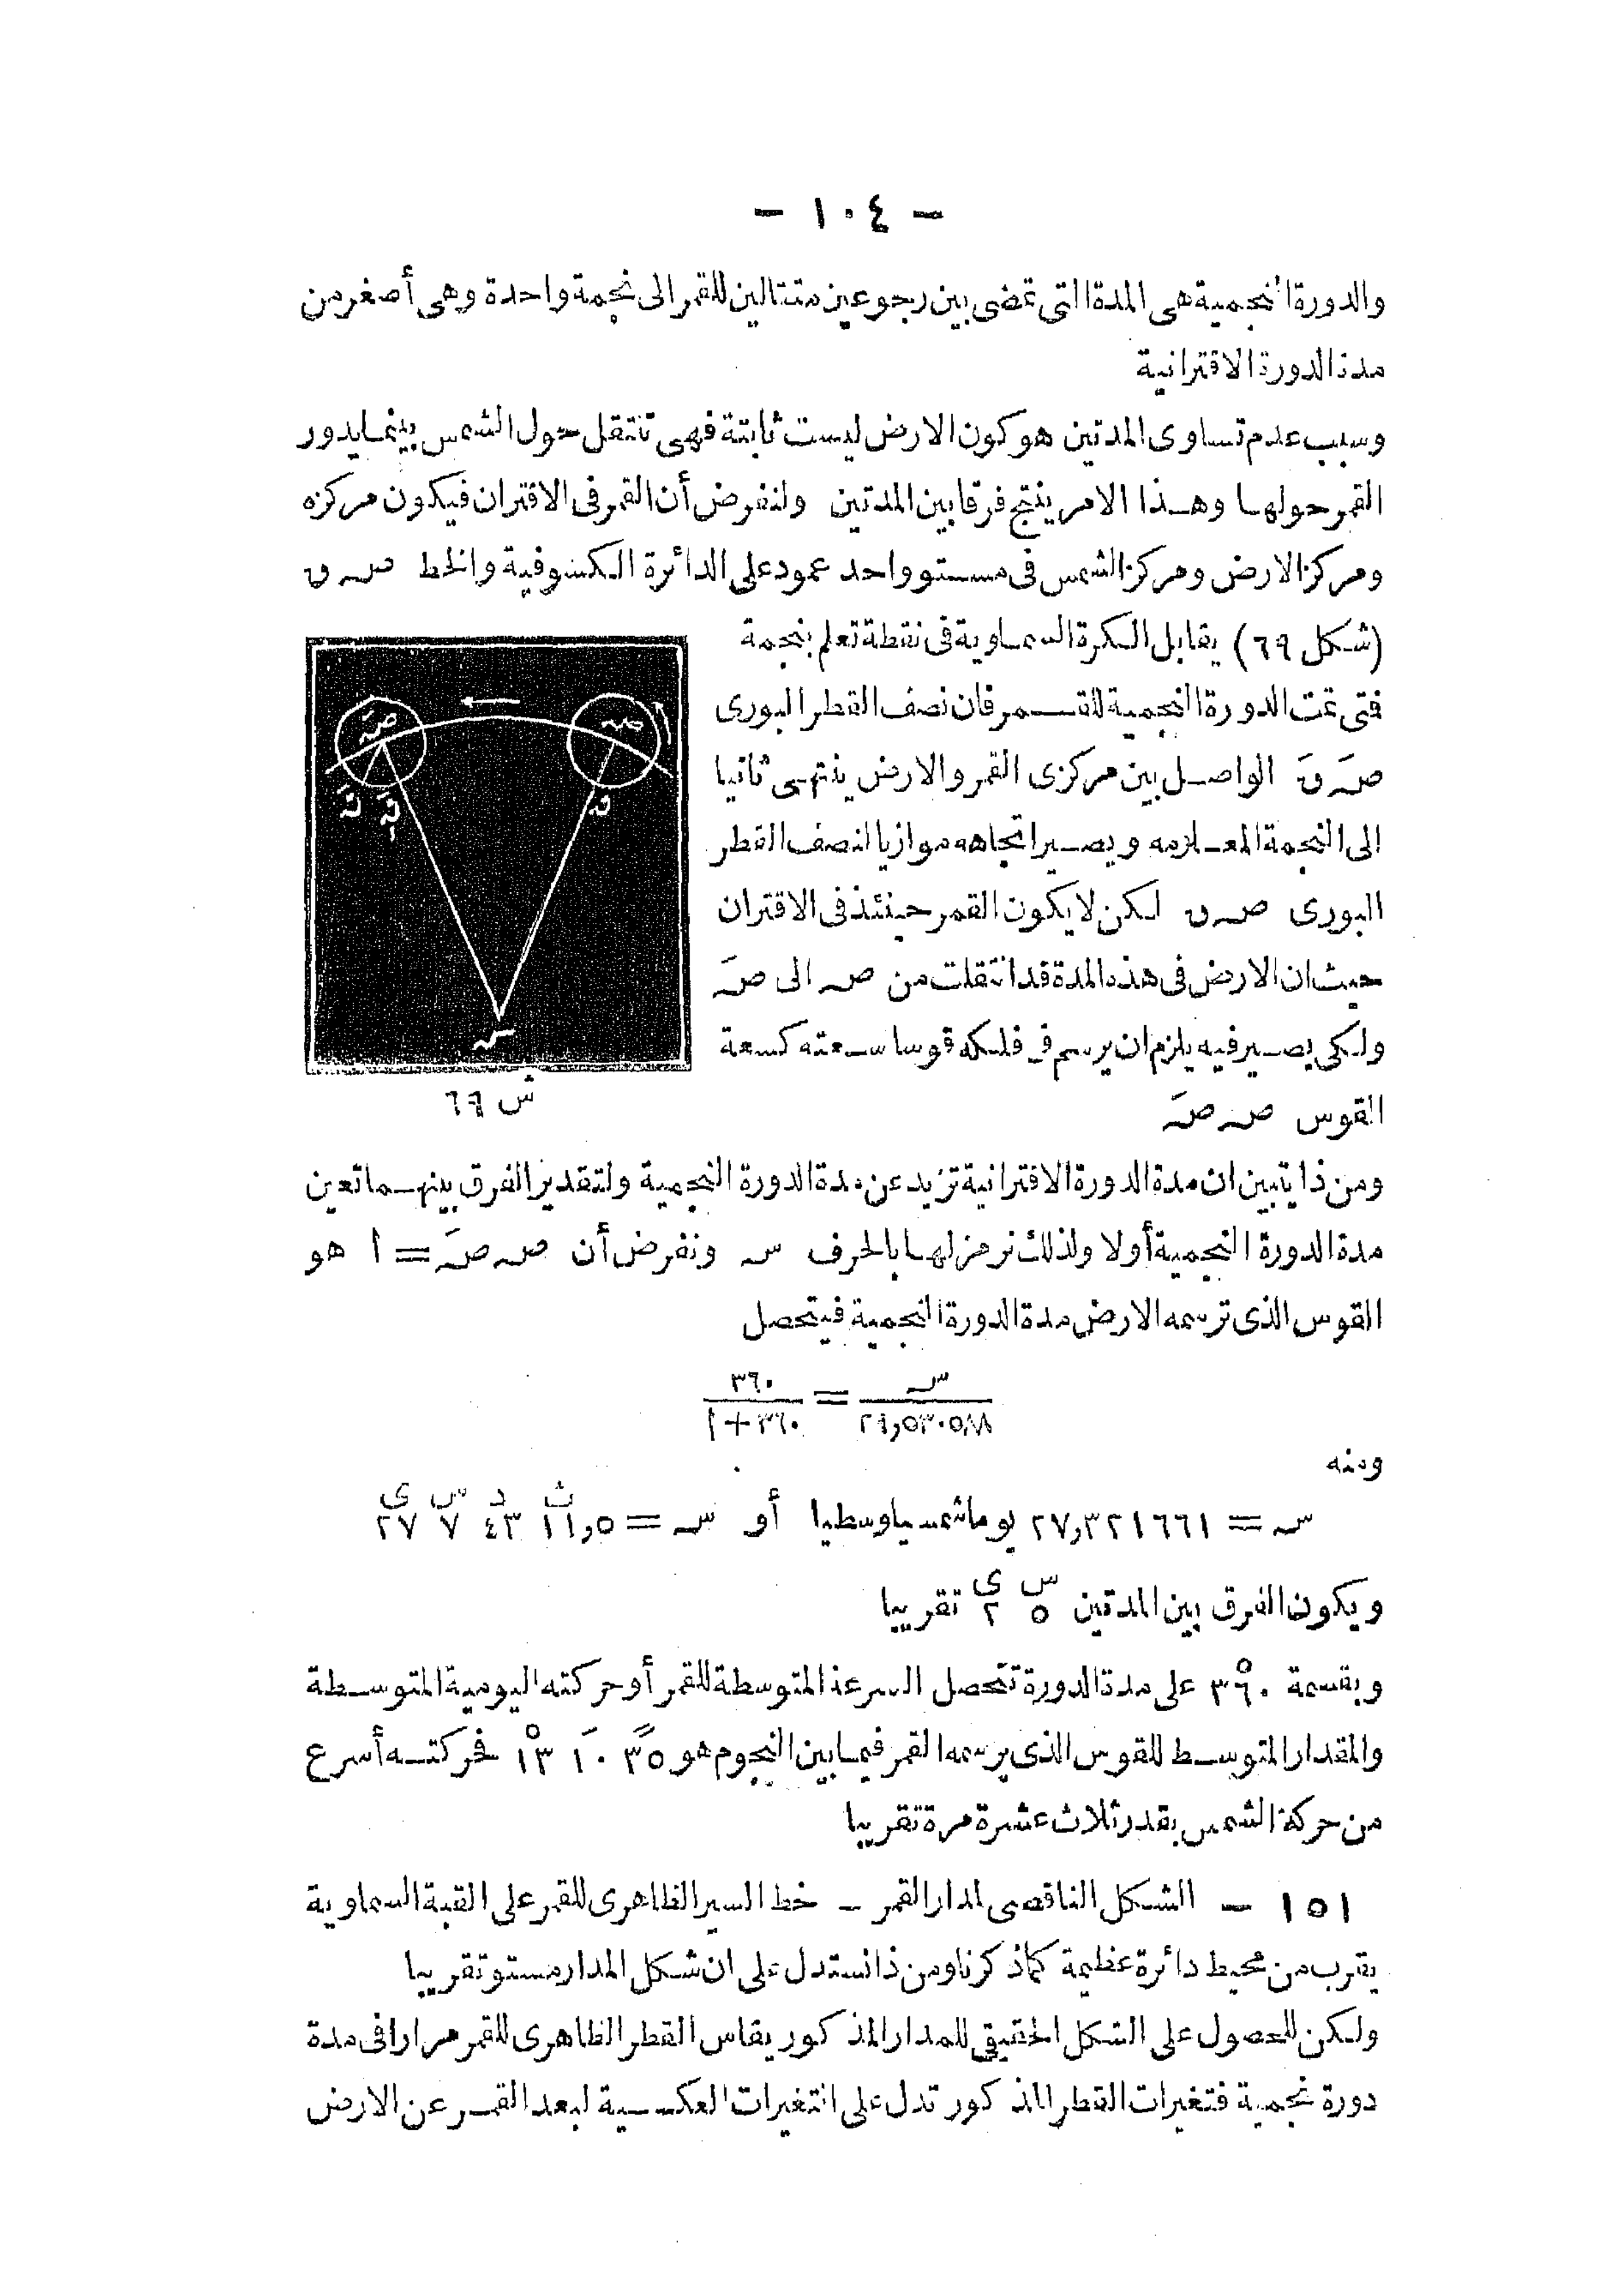 - ١٠٤ -
والدورة النجمية هى المدة التى تمضى بين رجوعين متتالين للقمر الى نجمة واحدة وهى أصغر من
مدة الدورة الاقترانية
وسبب عدم تساوى المدتين هو كون الارض ليست ثابتة فهى تنتقل حول الشمس بينما يدور
القمر حولها وهذا الامر ينتج فرقا بين المدتين ولنفرض أن القمر فى الاقتران فيكون مركزه
ومركز الارض ومركز الشمس فى مستو واحد عمود على الدائرة الكسوفية والخط صـ ق
(شكل ٦٩) يقابل الكرة السماوية فى نقطة تعلم بنجمة
فتى تمت الدورة النجمية للقمر فان نصف القطر البورى
صَـ قَ الواصل بين مركزى القمر والارض ينتهى ثانيا
الى النجمة المعلامه ويصير اتجاهه موازيا لنصف القطر
البورى صـ ق لكن لا يكون القمر حينئذ فى الاقتران
حيث ان الارض فى هذه المدة قد انتقلت من صـ الى صَـ
ولكى يصير فيه يلزم ان يرسم فى فلكه قوسا سعته كسعة
القوس صـ صَـ
صـ
صَـ
ق
قَ
سـ
ش ٦٩
ومن ذا يتبين ان مدة الدورة الاقترانية تزيد عن مدة الدورة النجمية ولتقدير الفرق بينهما تعين
مدة الدورة النجمية أولا ولذلك نرمز لها بالحرف سـ ونفرض أن صـ صَـ = ا هو
القوس الذى ترسمه الارض مدة الدورة النجمية فيتحصل
سـ / ٢٩,٥٣٠٥٨٨ = ٣٦٠ / ٣٦٠ + ا
ومنه
سـ = ٢٧,٣٢١٦٦١ يوما شمسيا وسطيا أو سـ = ١١,٥ث ٤٣د ٧س ٢٧ى
ويكون الفرق بين المدتين ٥س ٢ى تقريبا
وبقسمة ٣٦٠° على مدة الدورة تتحصل السرعة المتوسطة للقمر أو حركته اليومية المتوسطة
والمقدار المتوسط للقوس الذى يرسمه القمر فيما بين النجوم هو ٣٥″ ١٠′ ١٣° فحركته أسرع
من حركة الشمس بقدر ثلاث عشرة مرة تقريبا
١٥١ - الشكل الناقصى لمدار القمر - خط السير الظاهرى للقمر على القبة السماوية
يقرب من محيط دائرة عظيمة كما ذكرنا ومن ذا نستدل على ان شكل المدار مستو تقريبا
ولكن للحصول على الشكل الحقيقى للمدار المذكور يقاس القطر الظاهرى للقمر مرارا فى مدة
دورة نجمية فتغيرات القطر المذكور تدل على التغيرات العكسية لبعد القمر عن الارض